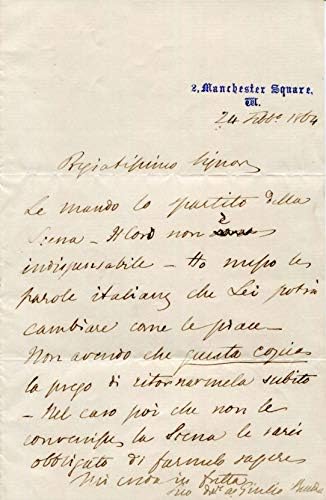 2, Manchester Square,
W.
24 Febb.º 1864
Pregiatissimo Signor
Le mando lo partito della
Scena - Il Coro non è
indispensabile - Ho messo le
parole italiane che Lei potrà
cambiare come le piace -
Non avendo che questa copia
la prego di ritornarmela subito
- Nel caso poi che non le
convenisse la Scena le sarei
obbligato di farmelo sapere
Mi creda in fretta
Giulio